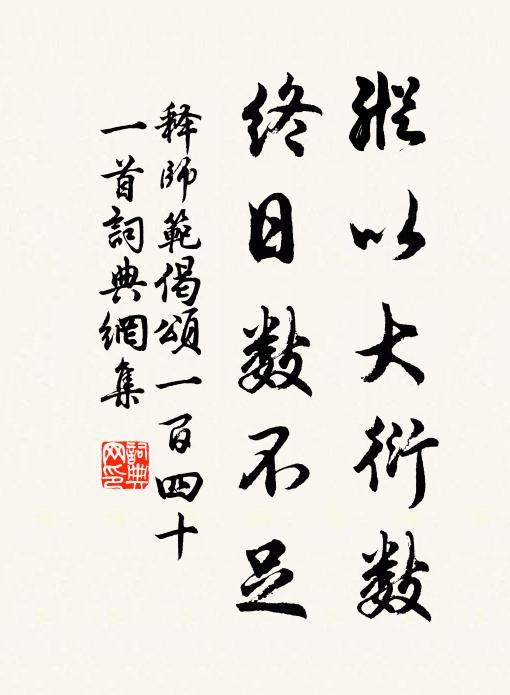 縱以大衍数
终日数不足
释師範偈頌一百四十
一首詞典網集
詞典
网印